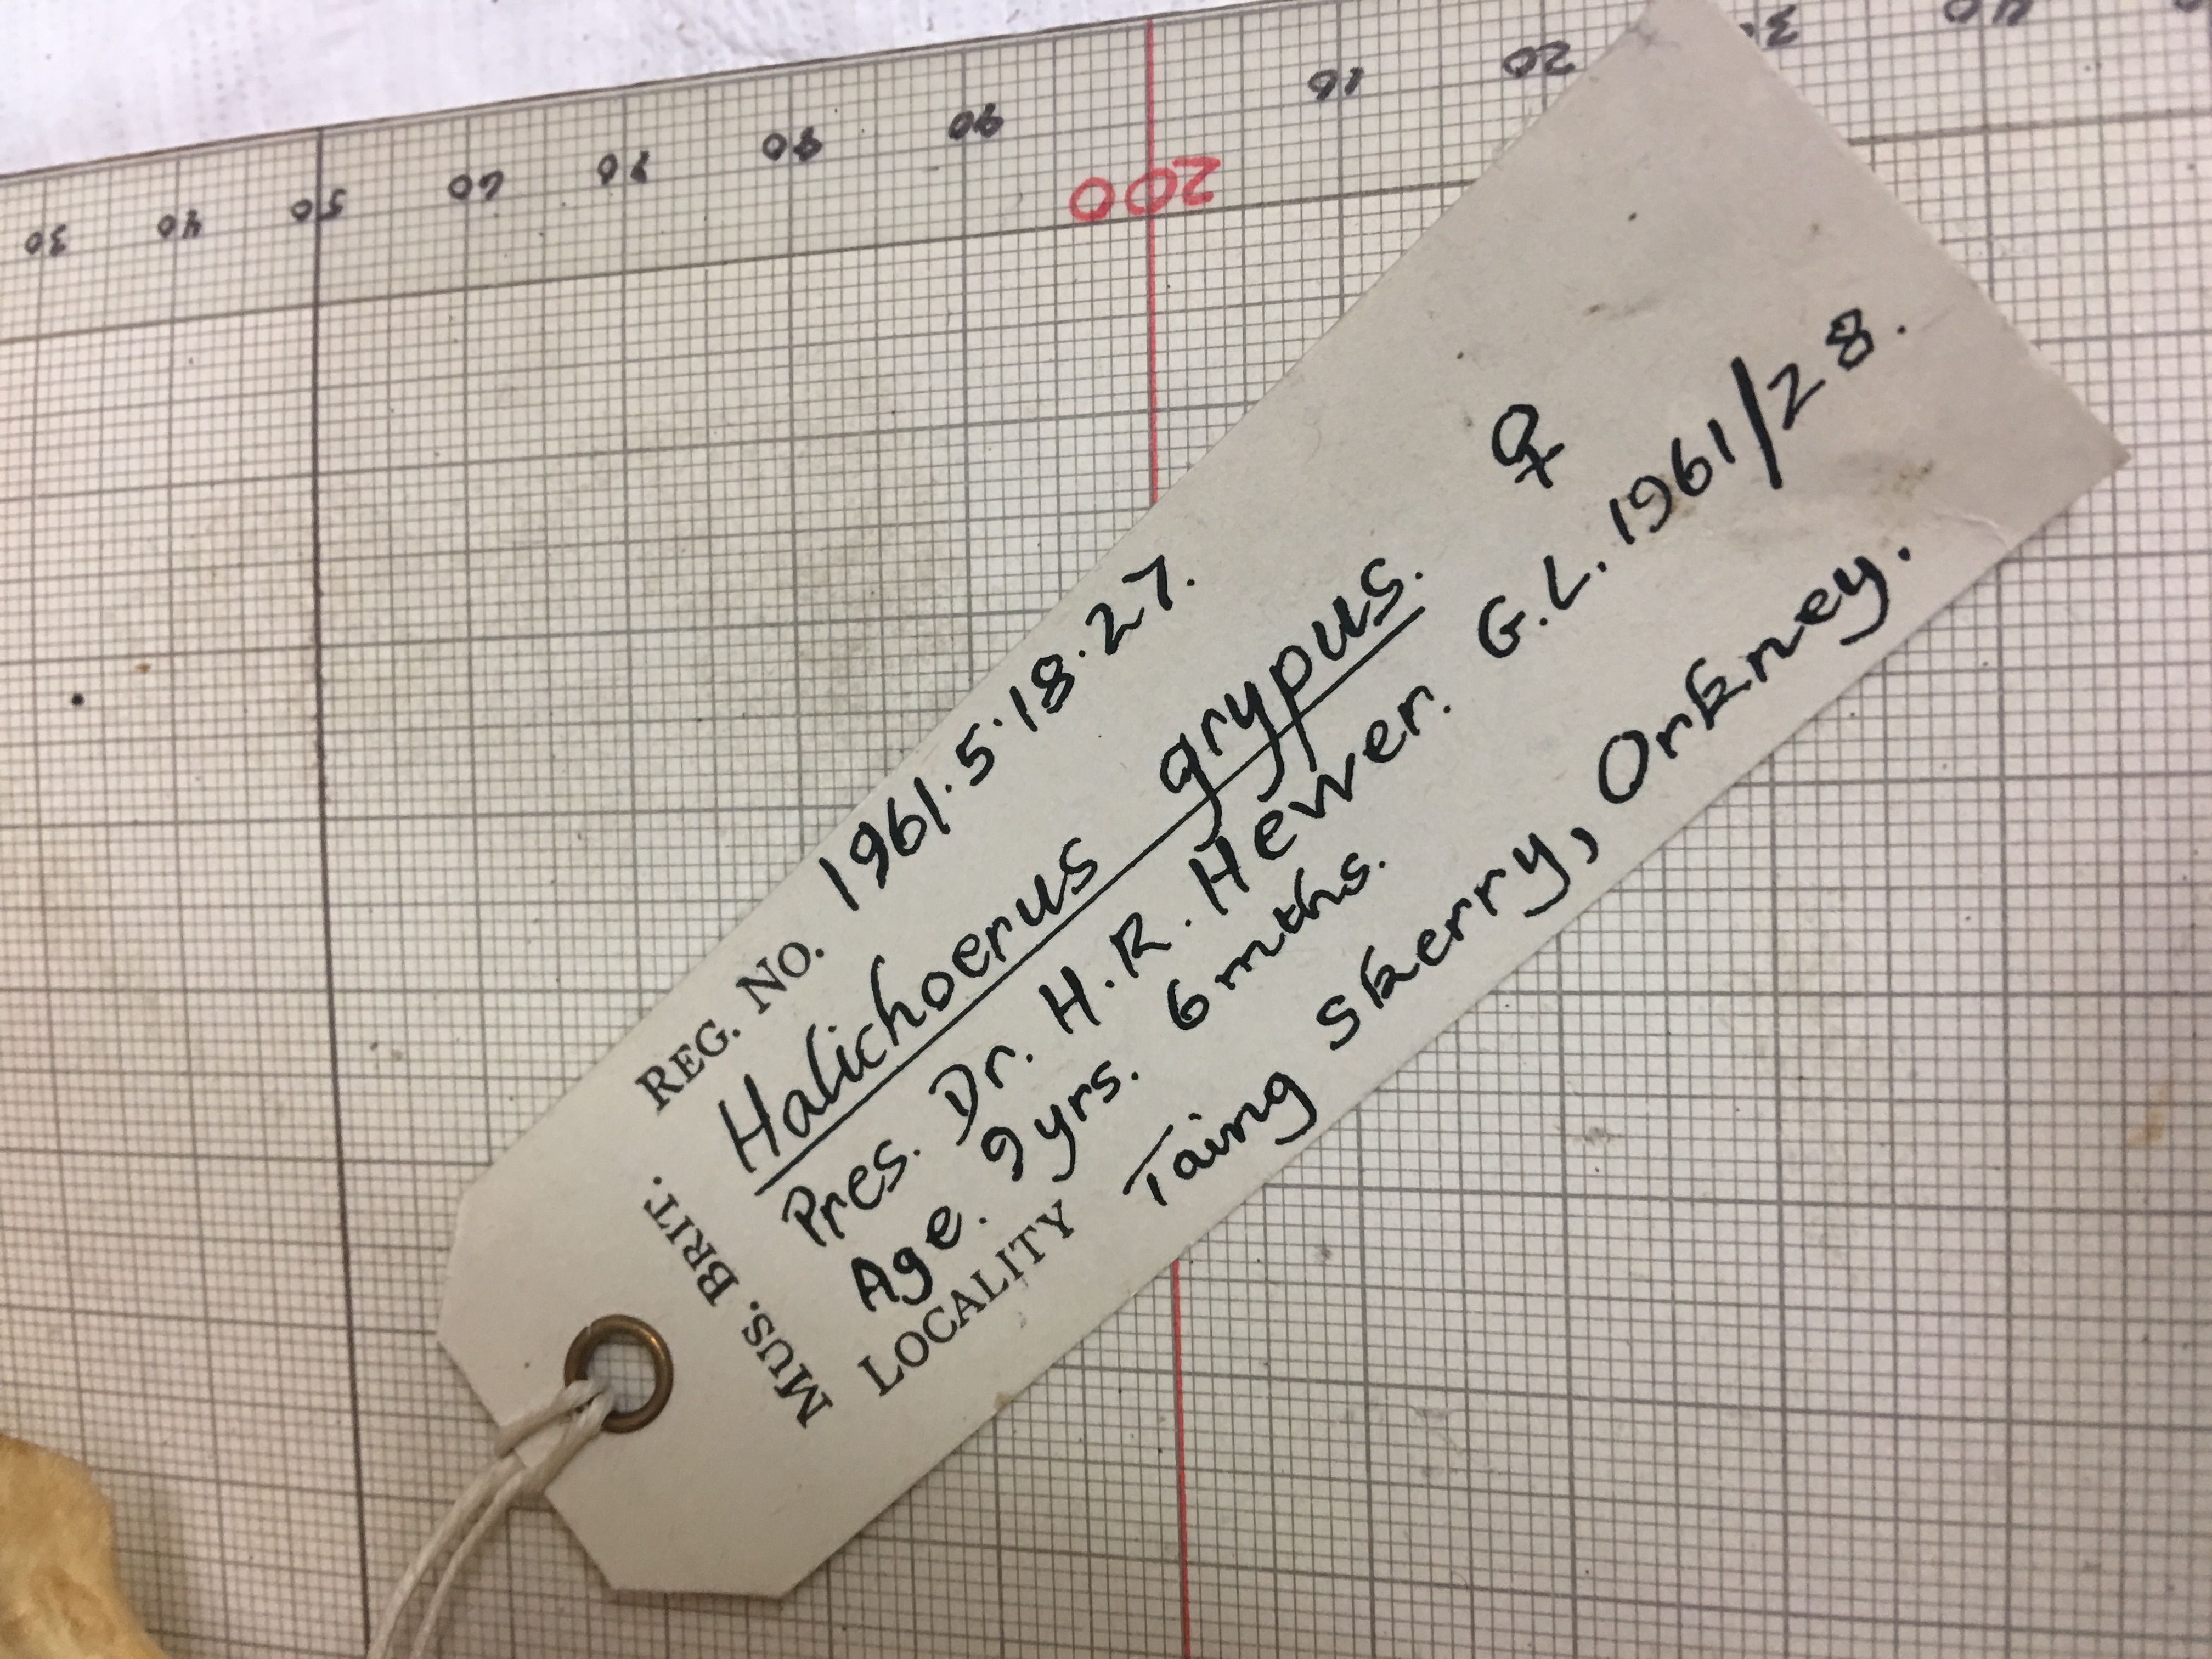 MUS. BRIT.
REG. NO. 1961.5.18.27.
Halichoerus grypus. ♀
Pres. Dr. H.R. Hewer. G.L. 1961/28.
Age. 9yrs. 6mths.
LOCALITY Taing Skerry, Orkney.
30
40
50
60
70
80
90
200
10
20
3
40